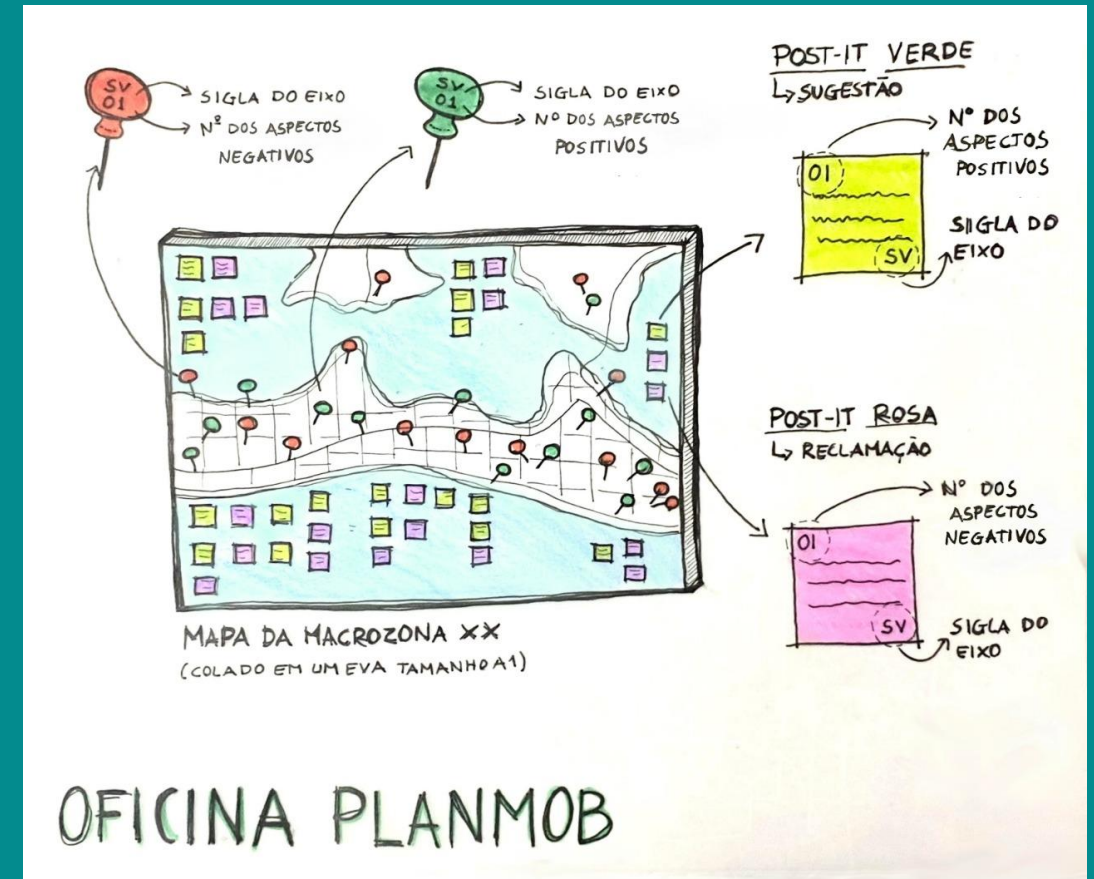 SV
01
SIGLA DO EIXO
Nº DOS ASPECTOS
NEGATIVOS
SV
01
SIGLA DO EIXO
Nº DOS ASPECTOS
POSITIVOS
POST-IT VERDE
SUGESTÃO
Nº DOS
ASPECTOS
POSITIVOS
01
SIGLA DO
EIXO
SV
POST-IT ROSA
RECLAMAÇÃO
Nº DOS
ASPECTOS
NEGATIVOS
01
SV
SIGLA DO
EIXO
MAPA DA MACROZONA XX
(COLADO EM UM EVA TAMANHO A1)
OFICINA PLANMOB